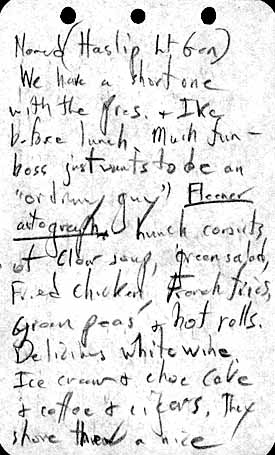 Nomad (Haslip Lt Gen)
We have a short one
with the Pres. & Ike
before lunch. Much fun –
boss just wants to be an
"ordinary guy") Fleener
autographs. Lunch consists
of clear soup, green salad,
Fried chicken, French fries,
green peas & hot rolls.
Delicious white wine,
Ice cream & choc cake
& coffee & cigars. They
shove a nice